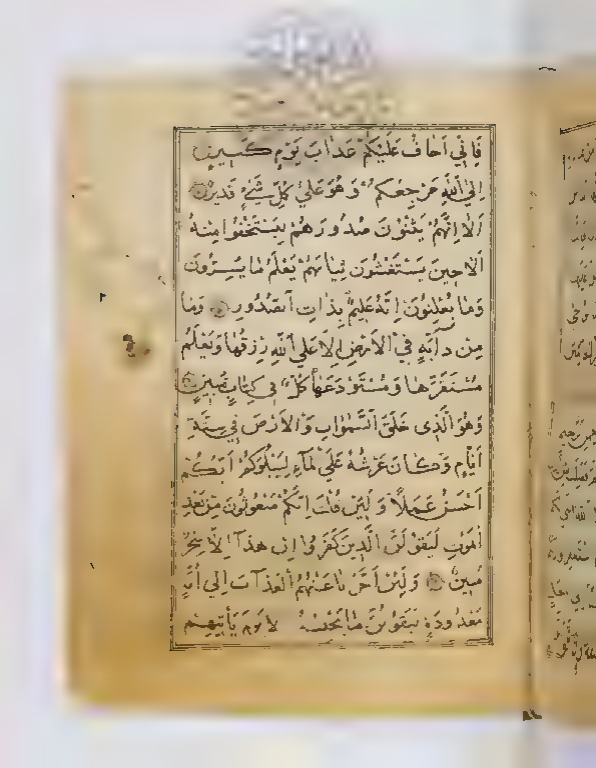 فَاِنّٖي اَخَافُ عَلَيْكُمْ عَذَابَ يَوْمٍ كَبِيرٍ
اِلَي اللّٰهِ مَرْجِعُكُمْ وَهُوَ عَلٰي كُلِّ شَيْءٍ قَدِيرٌ
اَلَا اِنَّهُمْ يَثْنُونَ صُدُورَهُمْ لِيَسْتَخْفُوا مِنْهُ
اَلَا حِينَ يَسْتَغْشُونَ ثِيَابَهُمْ يَعْلَمُ مَا يُسِرُّونَ
وَمَا يُعْلِنُونَ اِنَّهُ عَلِيمٌ بِذَاتِ الصُّدُورِ وَمَا
مِنْ دَآبَّةٍ فِي الْاَرْضِ اِلَّا عَلَي اللّٰهِ رِزْقُهَا وَيَعْلَمُ
مُسْتَقَرَّهَا وَمُسْتَوْدَعَهَا كُلٌّ فِي كِتَابٍ مُبِينٍ
وَهُوَ الَّذِي خَلَقَ السَّمٰوَاتِ وَالْاَرْضَ فِي سِتَّةِ
اَيَّامٍ وَكَانَ عَرْشُهُ عَلَي الْمَآءِ لِيَبْلُوَكُمْ اَيُّكُمْ
اَحْسَنُ عَمَلًا وَلَئِنْ قُلْتَ اِنَّكُمْ مَبْعُوثُونَ مِنْ بَعْدِ
الْمَوْتِ لَيَقُولَنَّ الَّذِينَ كَفَرُوا اِنْ هٰذَآ اِلَّا سِحْرٌ
مُبِينٌ وَلَئِنْ اَخَّرْنَا عَنْهُمُ الْعَذَابَ اِلٰي اُمَّةٍ
مَعْدُودَةٍ لَيَقُولُنَّ مَا يَحْبِسُهُ اَلَا يَوْمَ يَأْتِيهِمْ